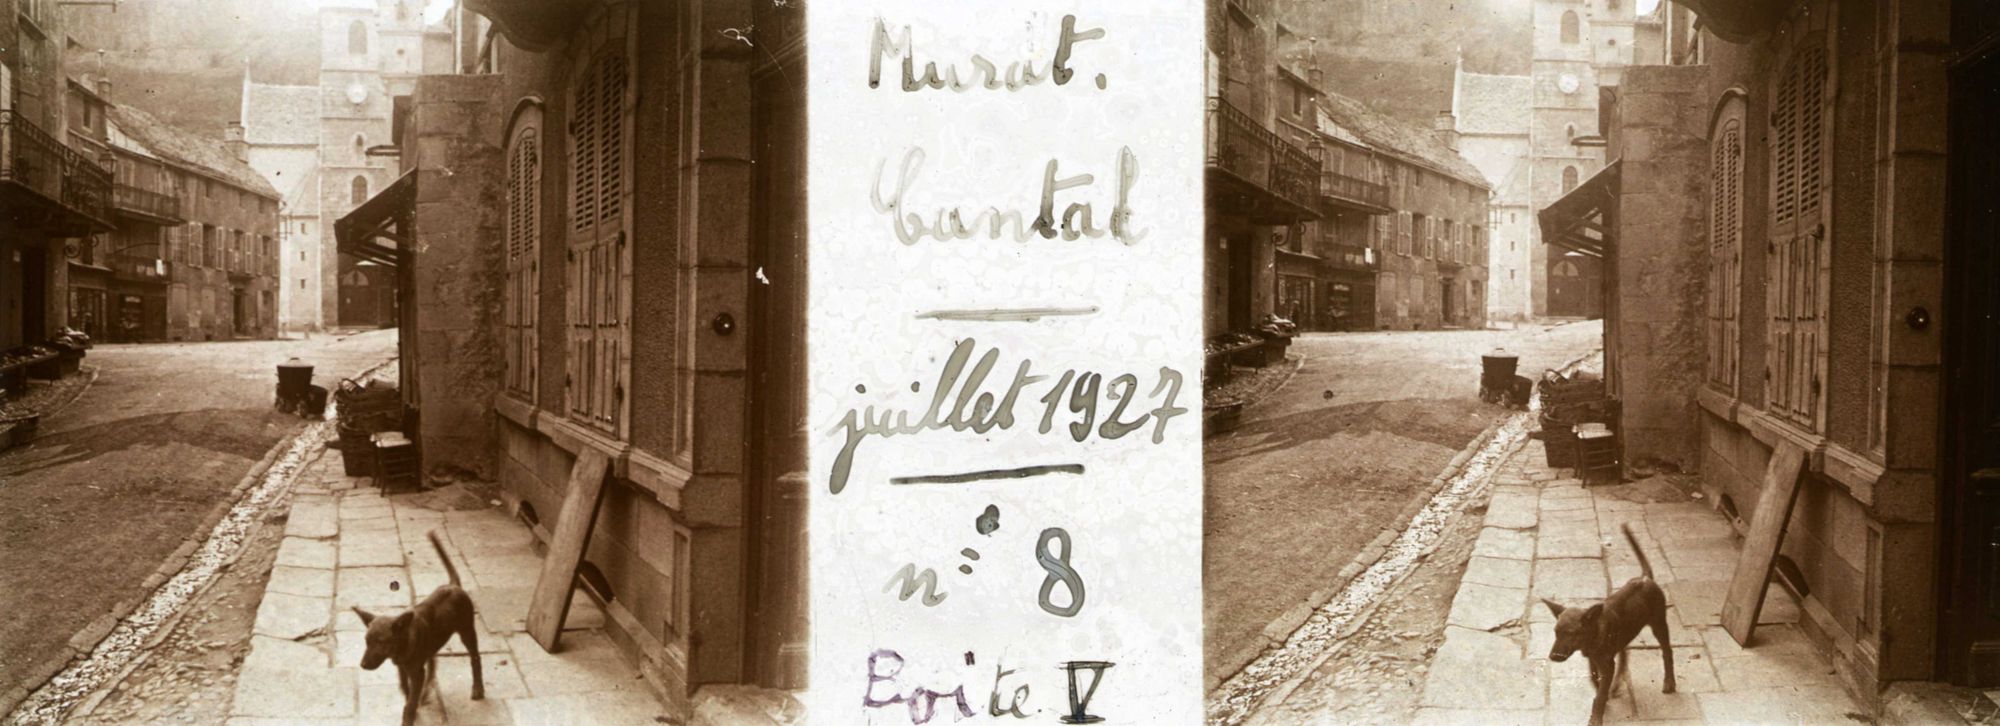 Murat.
Cantal
juillet 1927
n° 8
Boite V